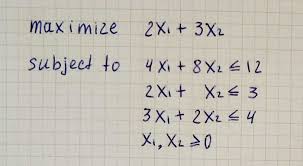 maximize 2x₁ + 3x₂
subject to 4x₁ + 8x₂ ≤ 12
2x₁ + x₂ ≤ 3
3x₁ + 2x₂ ≤ 4
x₁, x₂ ≥ 0